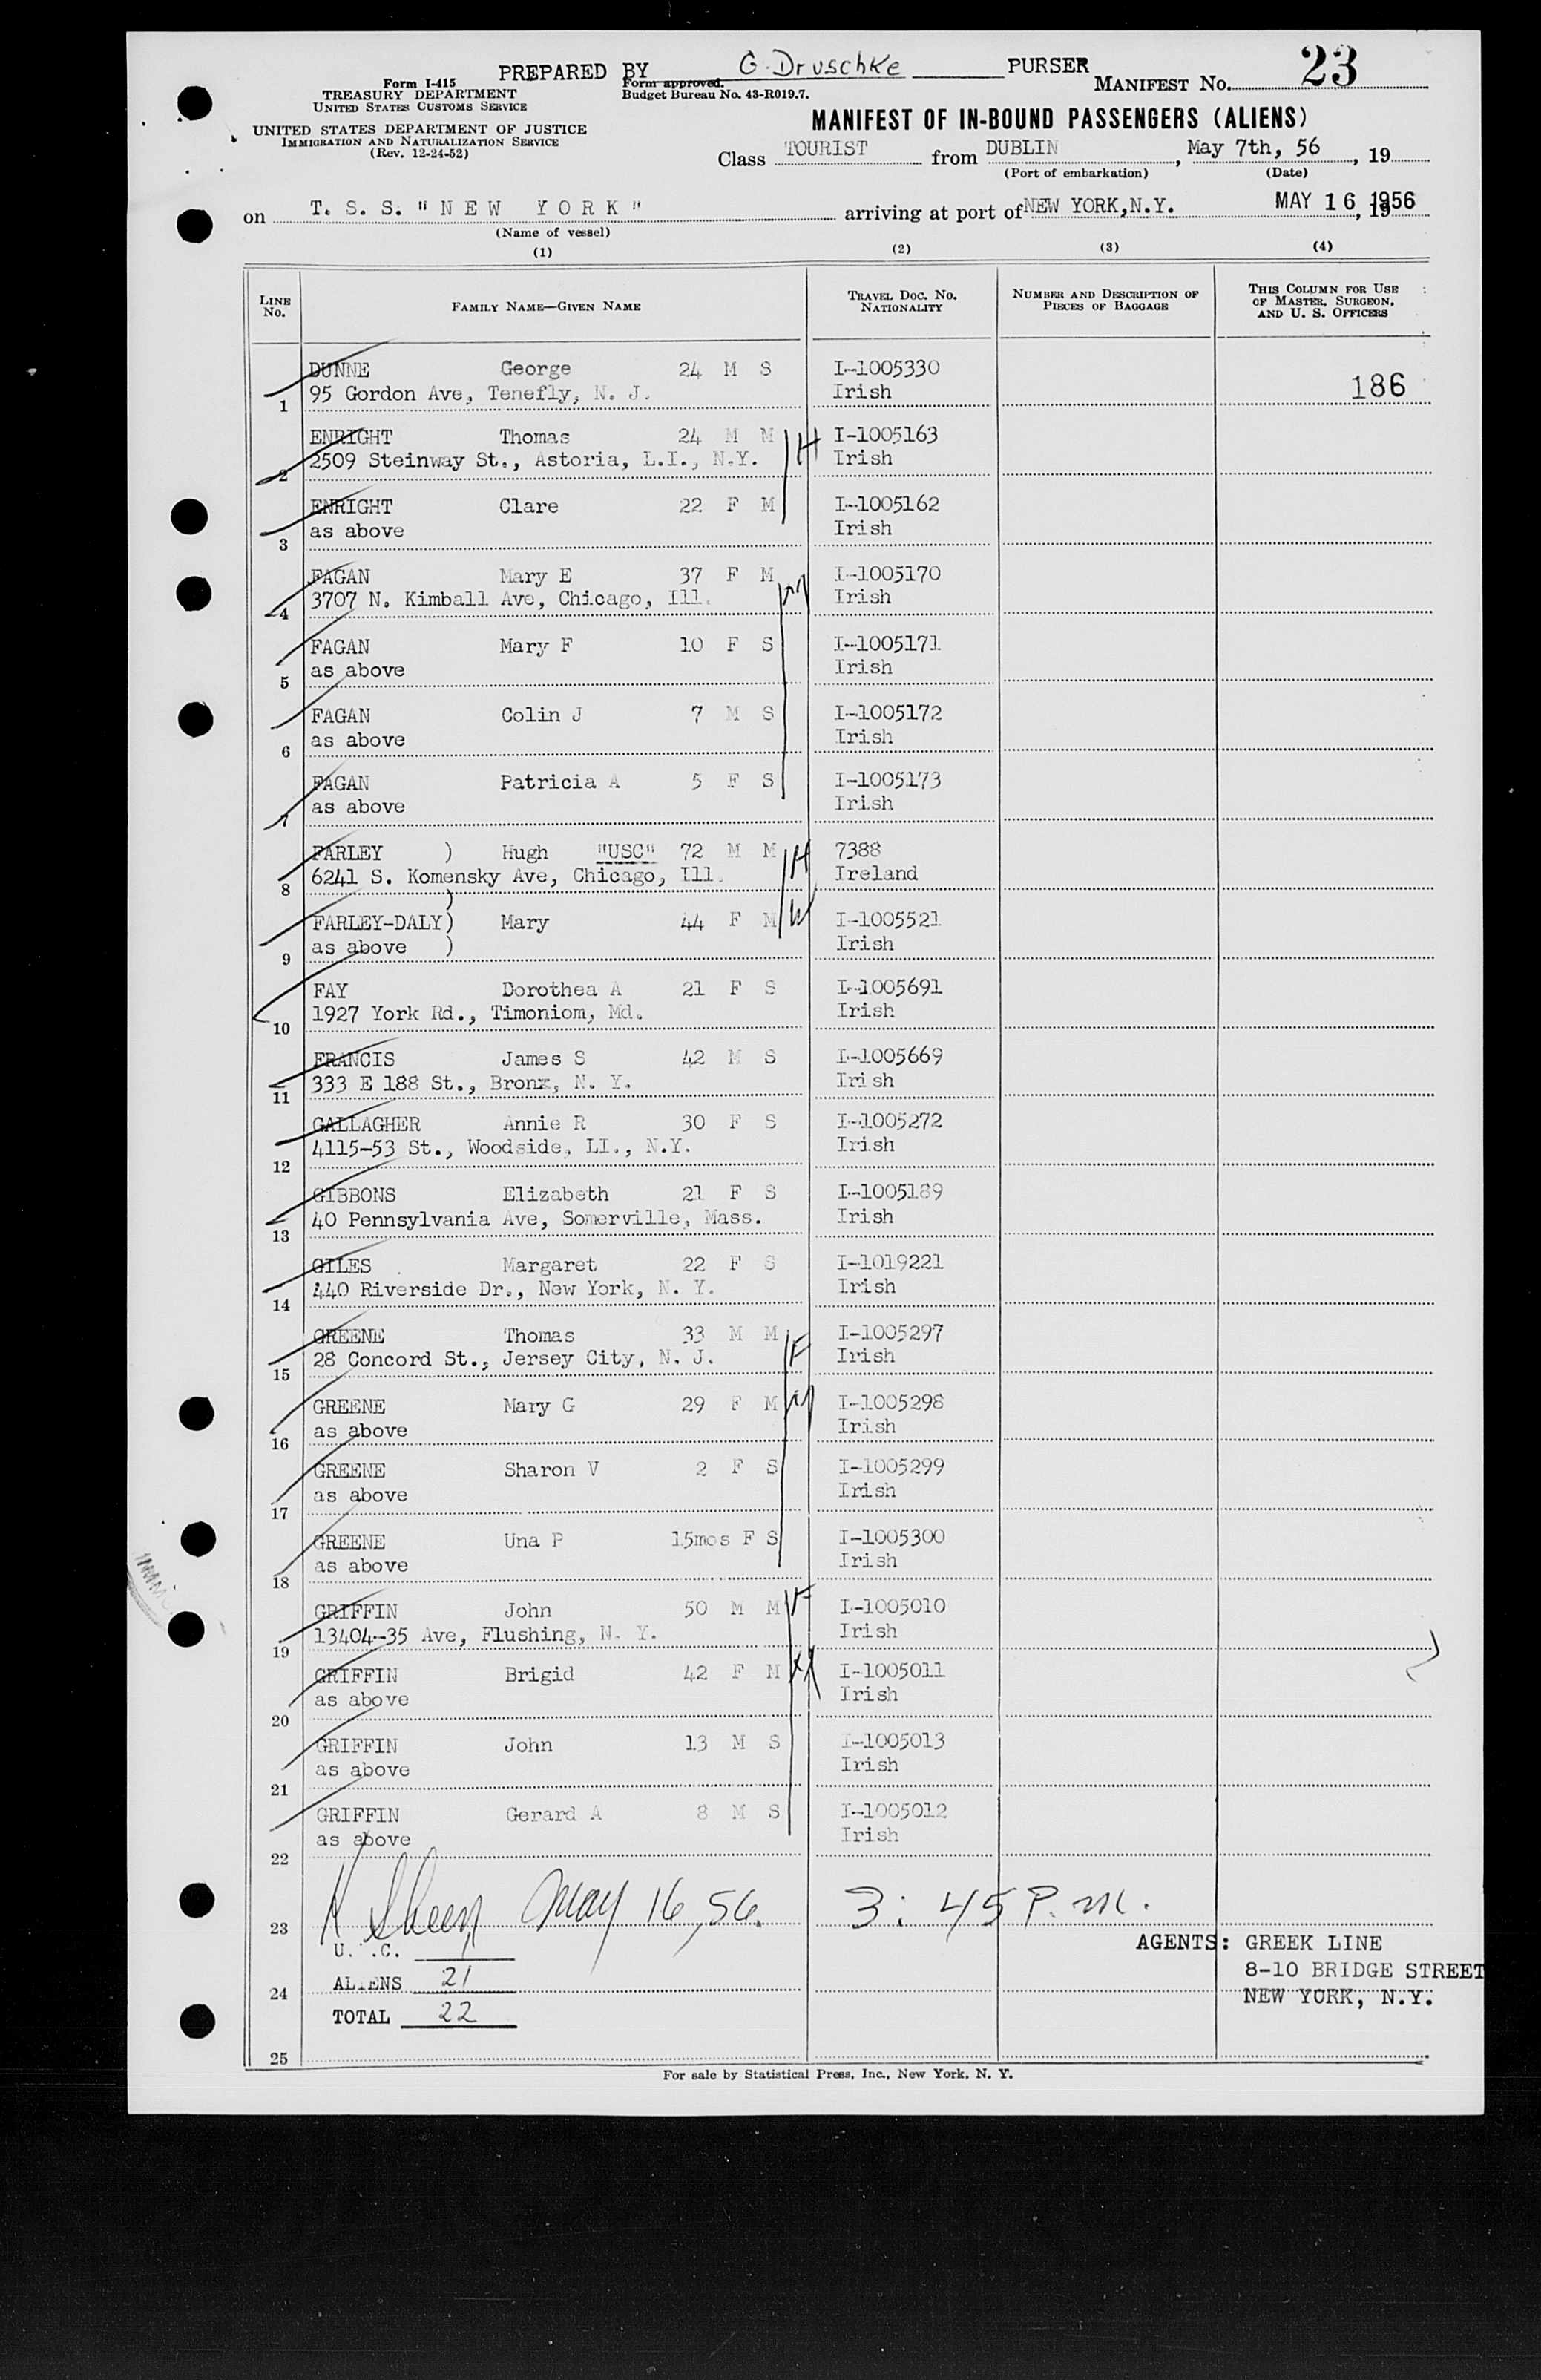 PREPARED BY G. Druschke PURSER
Form I-415
TREASURY DEPARTMENT
UNITED STATES CUSTOMS SERVICE
Form approved.
Budget Bureau No. 43-R019.7.
MANIFEST No. 23
UNITED STATES DEPARTMENT OF JUSTICE
IMMIGRATION AND NATURALIZATION SERVICE
(Rev. 12-24-52)
MANIFEST OF IN-BOUND PASSENGERS (ALIENS)
Class TOURIST from DUBLIN, May 7th, 56, 19
(Port of embarkation) (Date)
on T. S. S. "NEW YORK" arriving at port of NEW YORK, N.Y. MAY 16, 1956
(Name of vessel)
(1) (2) (3) (4)
LINE No. FAMILY NAME—GIVEN NAME TRAVEL DOC. NO. NATIONALITY NUMBER AND DESCRIPTION OF PIECES OF BAGGAGE THIS COLUMN FOR USE OF MASTER, SURGEON, AND U. S. OFFICERS
DUNNE George 24 M S I-1005330
1 95 Gordon Ave, Tenefly, N. J. Irish 186
ENRIGHT Thomas 24 M M H I-1005163
2 2509 Steinway St., Astoria, L.I., N.Y. Irish
ENRIGHT Clare 22 F M I-1005162
3 as above Irish
FAGAN Mary E 37 F M M I-1005170
4 3707 N. Kimball Ave, Chicago, Ill. Irish
FAGAN Mary F 10 F S I-1005171
5 as above Irish
FAGAN Colin J 7 M S I-1005172
6 as above Irish
FAGAN Patricia A 5 F S I-1005173
7 as above Irish
FARLEY ) Hugh "USC" 72 M M H 7388
8 6241 S. Komensky Ave, Chicago, Ill. Ireland
)
FARLEY-DALY) Mary 44 F M W I-1005521
9 as above ) Irish
FAY Dorothea A 21 F S I-1005691
10 1927 York Rd., Timoniom, Md. Irish
FRANCIS James S 42 M S I-1005669
11 333 E 188 St., Bronx, N. Y. Irish
GALLAGHER Annie R 30 F S I-1005272
12 4115-53 St., Woodside, LI., N.Y. Irish
GIBBONS Elizabeth 21 F S I-1005189
13 40 Pennsylvania Ave, Somerville, Mass. Irish
GILES Margaret 22 F S I-1019221
14 440 Riverside Dr., New York, N. Y. Irish
GREENE Thomas 33 M M F I-1005297
15 28 Concord St., Jersey City, N. J. Irish
GREENE Mary G 29 F M M I-1005298
16 as above Irish
GREENE Sharon V 2 F S I-1005299
17 as above Irish
GREENE Una P 15mos F S I-1005300
18 as above Irish
GRIFFIN John 50 M M F I-1005010
19 13404-35 Ave, Flushing, N. Y. Irish
GRIFFIN Brigid 42 F M M I-1005011
20 as above Irish
GRIFFIN John 13 M S I-1005013
21 as above Irish
GRIFFIN Gerard A 8 M S I-1005012
22 as above Irish
23 May 16, 56. 3:45 P.M.
U. .C.
AGENTS: GREEK LINE
24 ALIENS 21 8-10 BRIDGE STREET
TOTAL 22 NEW YORK, N.Y.
25
For sale by Statistical Press, Inc., New York, N. Y.